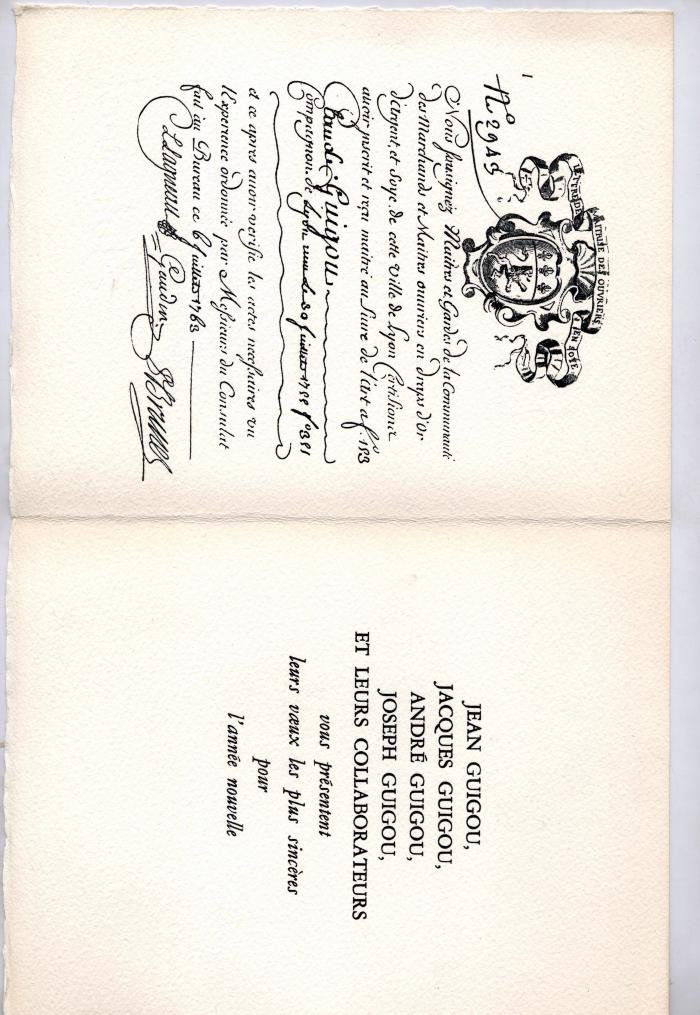 LETTRE DE
MAITRISE DES OUVRIERS
EN SOYE
N.º 2945
Nous soussignez Maitres et Gardes de la Communauté
des Marchands et Maitres ouvriers en draps d'or
d'argent, et Soye de cette Ville de Lyon Certifions
avoir inscrit et reçu maitre au Livre de l'art a f.º 153
Claude Guigou
Compagnon de Lyon
et ce apres avoir verifié les actes necessaires vu
l'experience ordonnée par Messieurs du Consulat
fait au Bureau ce 6 juillet 1763
Gaudin
JEAN GUIGOU,
JACQUES GUIGOU,
ANDRÉ GUIGOU,
JOSEPH GUIGOU,
ET LEURS COLLABORATEURS
vous présentent
leurs vœux les plus sincères
pour
l'année nouvelle